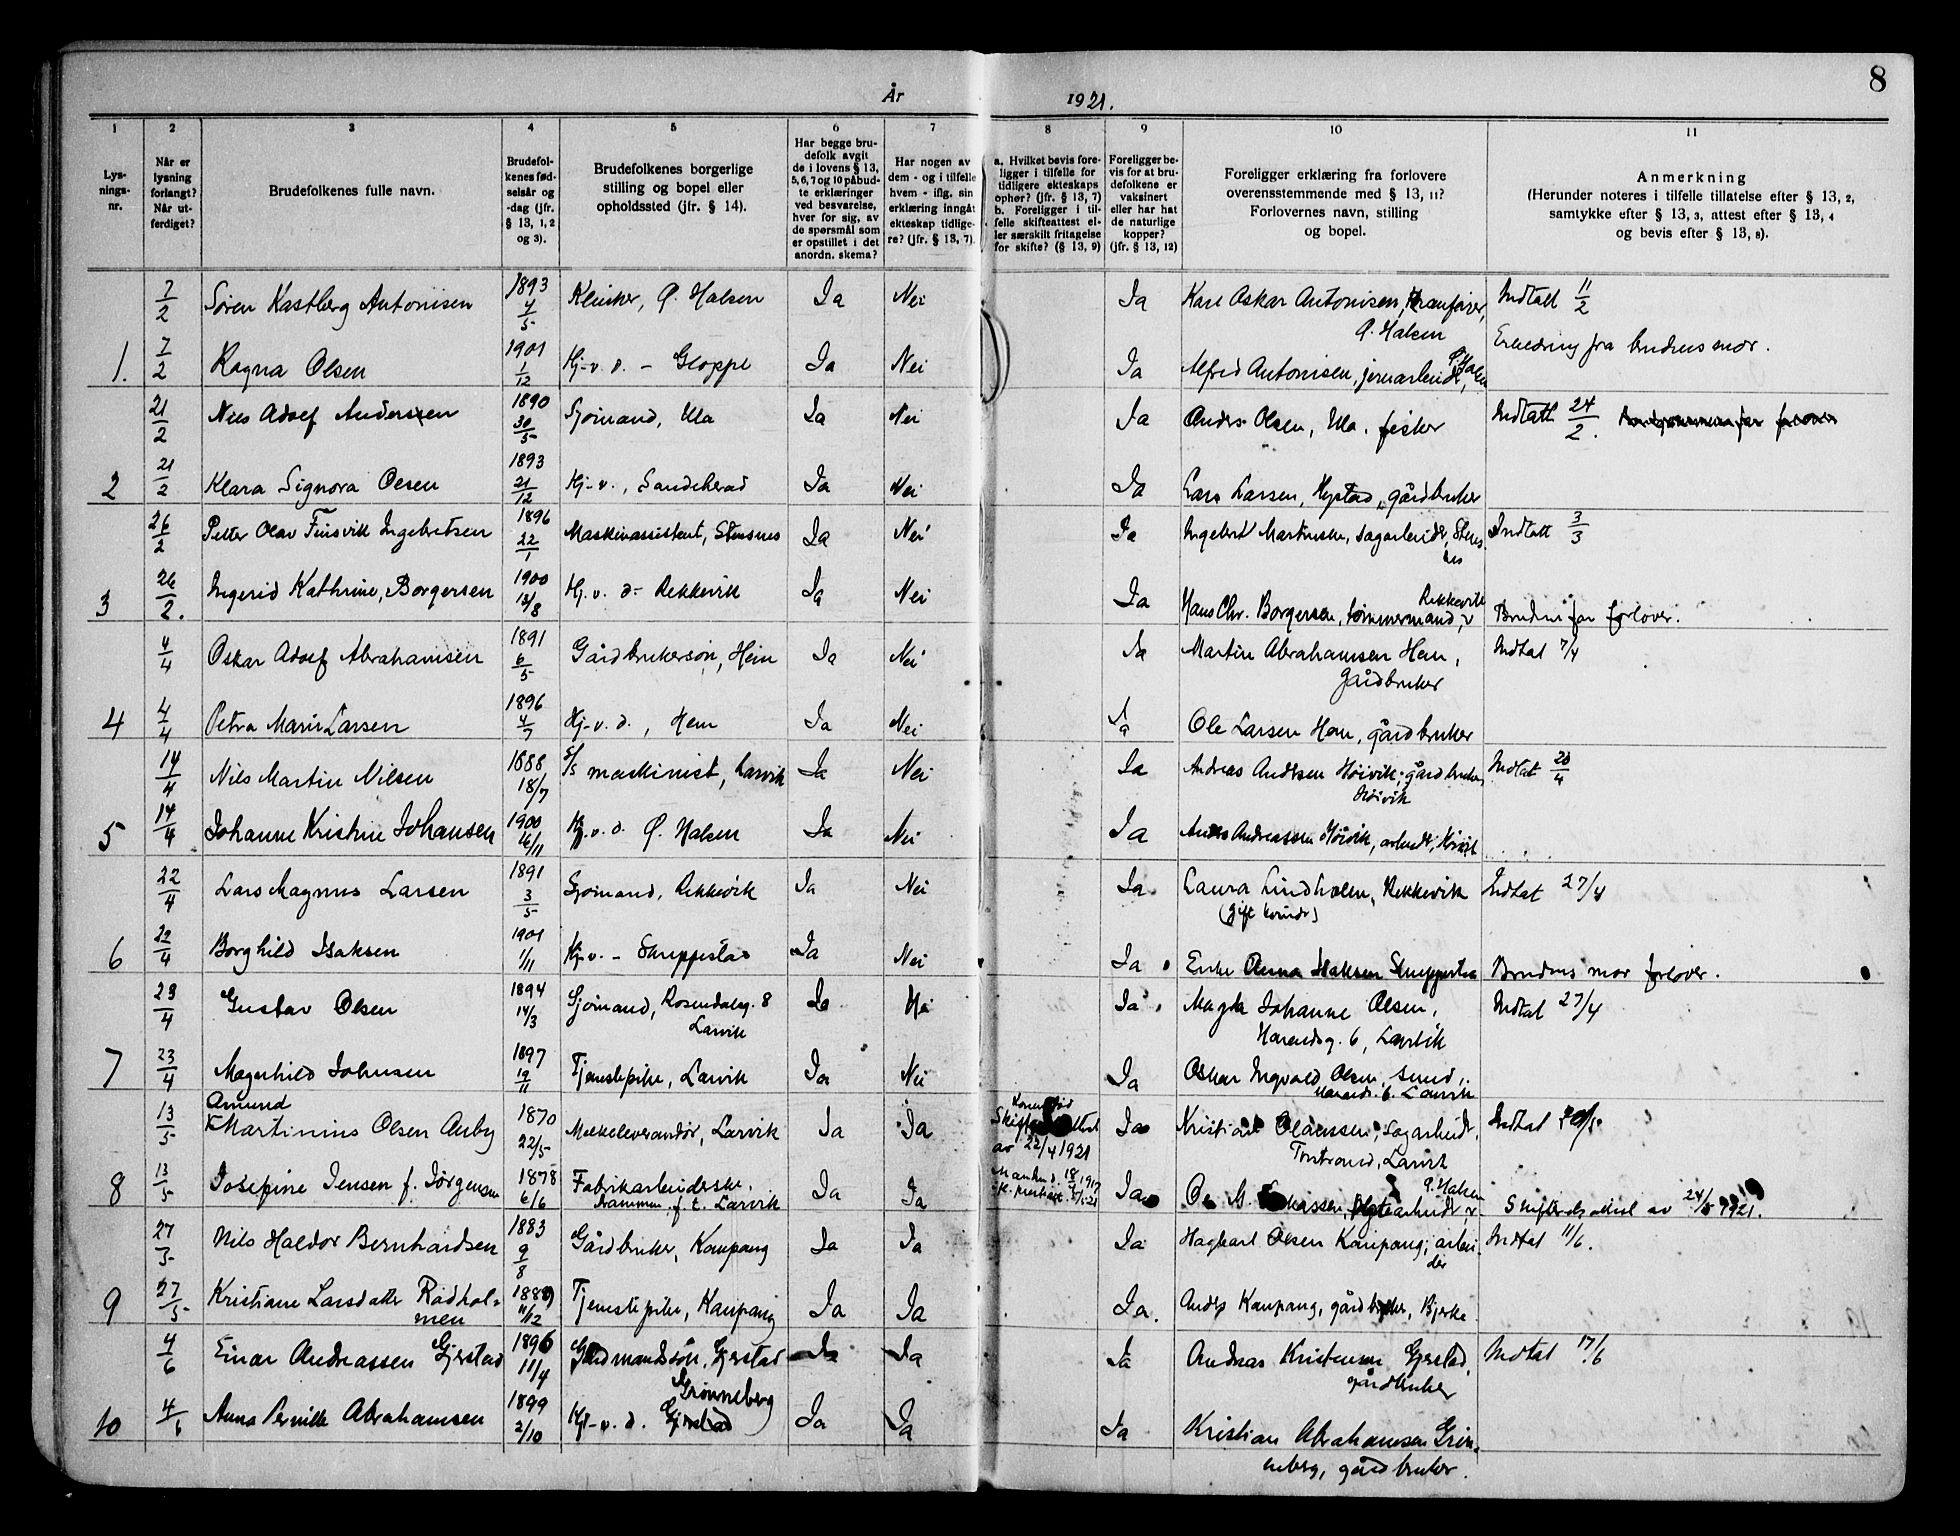 8
År 1921.
1 2 3 4 5 6 7 8 9 10 11
Lys-
nings-
nr.
Når er
lysning
forlangt?
Når ut-
ferdiget?
Brudefolkenes fulle navn.
Brudefol-
kenes fød-
selsår og
-dag (jfr.
§ 13, 1, 2
og 3).
Brudefolkenes borgerlige
stilling og bopel eller
opholdssted (jfr. § 14).
Har begge bru-
defolk avgit
de i lovens § 13,
5, 6, 7 og 10 påbud-
te erklæringer
ved besvarelse,
hver for sig, av
de spørsmål som
er opstillet i det
anordn. skema?
Har nogen av
dem - og i tilfelle
hvem - iflg. sin
erklæring inngåt
ekteskap tidlige-
re? (jfr. § 13, 7).
a. Hvilket bevis fore-
ligger i tilfelle for
tidligere ekteskaps
ophør? (jfr. § 13, 7)
b. Foreligger i til-
felle skifteattest el-
ler særskilt fritagelse
for skifte? (§ 13, 9)
Foreligger be-
vis for at bru-
defolkene er
vaksinert
eller har hat
de naturlige
kopper?
(jfr. § 13, 12)
Foreligger erklæring fra forlovere
overensstemmende med § 13, 11?
Forlovernes navn, stilling
og bopel.
Anmerkning
(Herunder noteres i tilfelle tillatelse efter § 13, 2,
samtykke efter § 13, 3, attest efter § 13, 4
og bevis efter § 13, 8).
7/2 Søren Kastberg Antonisen 1893 4/5 Ø. Halsen Ja Nei Ja Karl Oskar Antonisen,
Ø. Halsen
Indtatt 11/2
1. 7/2 Ragna Olsen 1901 1/12 Hj-v. d. – Gloppe Ja Nei Ja Alfred Antonisen, jernarbeider, Ø. Halsen
Erklæring fra brudens mor.
21/2 Nils Adolf Anderssen 1890 30/5 Sjømand, Ula Ja Nei Ja Anders Olsen, Ula. fisker Indtatt 24/2.
2 21/2 Klara Signora Olsen 1893 21/12 Hj-v., Sandeherad Ja Nei Ja Lars Larsen, Hystad, gårdbruker
26/2 Petter Olav Finsvik Ingebretsen 1896 22/1 Maskinassistent, Stensnes Ja Nei Ja Ingebret Martinsen, sagarbeider, Stens-
nes
Indtatt 3/3
3 26/2. Ingerid Kathrine Borgersen 1900 13/8 Hj. v. d – Rekkevik Ja Nei Ja Hans Chr. Borgersen, tømmermand, Rekkevik Brudens far forlover.
4/4 Oskar Adolf Abrahamsen 1891 6/5 Gårdbrukersøn, Hem Ja Nei Ja Martin Abrahamsen Hem,
Gårdbruker
Indtat 7/4
4 4/4 Petra Marie Larsen 1896 4/7 Hj-v. d., Hem Ja Nei Ja Ole Larsen Hem, gårdbruker
14/4 Nils Martin Nilsen 1888 18/7 maskinist, Larvik Ja Nei Ja Andreas Andersen Høivik, gårdbruker,
Høivik
Indtat 20/4
5 14/4 Johanne Kristine Johansen 1900 16/11 Hj. v. d. Ø. Halsen Ja Nei Ja Anders Andreassen Høivik, arbeider, Høivik
22/4 Lars Magnus Larsen 1891 3/5 Sjømand, Rekkevik Ja Nei Ja Laura Lindholm, Rekkevik
(gift kvinde)
Indtat 27/4
6 22/4 Borghild Isaksen 1901 1/11 Hj-v. – Skreppestad Ja Nei Ja Enke Anna Isaksen Skreppestad Brudens mor forlover.
23/4 Gustav Olsen 1894 14/3 Sjømand, Rosendalsg. 8
Larvik
Ja Nei Ja Johanne Olsen,
6, Larvik
Indtat 27/4
7 23/4 Magnhild Johnsen 1897 19/11 Tjenestepike, Larvik Ja Nei Ja Oskar Ingvald Olsen, smed,
6. Larvik
13/5 Amund
Martinius Olsen Auby 1870 22/5 Melkeleverandør, Larvik Ja Ja
av 22/4 1921
Ja Kristian Olaussen, Sagarbeider,
Torstrand, Larvik
Indtat
8 13/5 Josefine Jensen f. Jørgensen 1878 6/6 Fabrikarbeiderske,
Drammen, f. t. Larvik
Ja Ja
18/4 1917
Ja Ø. Halsen
Skifteretsattest av 24/5 1921.
27/5 Nils Haldor Bernhardsen 1883 9/8 Gårdbruker, Kaupang Ja Ja Ja Hagbart Olsen Kaupang, arbei-
der
Indtat 11/6.
9 27/5 Kristiane Larsdatter Rødhol-
men
1889 11/12 Tjenestepike, Kaupang Ja Ja Ja. Anders Kaupang, gårdbruker, Bjerke
4/6 Einar Andreassen Gjerstad 1896 11/4 Gårdmandssøn, Gjerstad Ja Ja Ja Andreas Kristensen Gjerstad,
gårdbruker
Indtat 17/6
10 4/6 Anna Pernille Abrahamsen 1899 2/10 Hj-v. d. Grønneberg
Ja Ja Ja Kristian Abrahamsen Grøn-
neberg, gårdbruker.